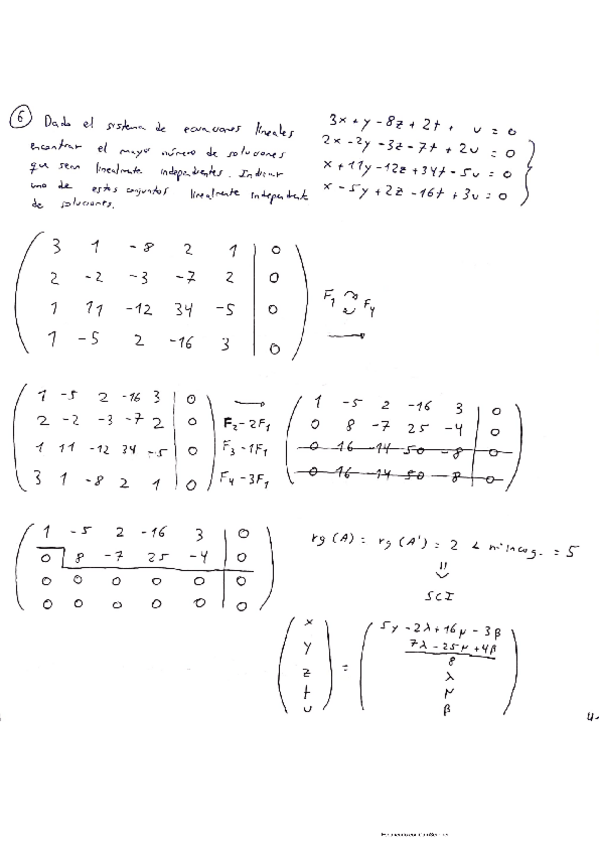 6 Dado el sistema de ecuaciones lineales
encontrar el mayor número de soluciones
que sean linealmente independientes. Indicar
uno de estos conjuntos linealmente independiente
de soluciones.
3x+y-8z+2t+ u=0
2x-2y-3z-7t+2u=0
x+11y-12z+34t-5u=0
x-5y+2z-16t+3u=0
3 1 -8 2 1 | 0
2 -2 -3 -7 2 | 0
1 11 -12 34 -5 | 0
1 -5 2 -16 3 | 0
F1 F4
1 -5 2 -16 3 | 0
2 -2 -3 -7 2 | 0
1 11 -12 34 -5 | 0
3 1 -8 2 1 | 0
F2-2F1
F3-1F1
F4-3F1
1 -5 2 -16 3 | 0
0 8 -7 25 -4 | 0
0 16 -14 50 -8 | 0
0 16 -14 50 -8 | 0
1 -5 2 -16 3 | 0
0 8 -7 25 -4 | 0
0 0 0 0 0 | 0
0 0 0 0 0 | 0
rg(A) = rg(A') = 2 < nº incog. = 5
SCI
x
y
z
t
u
=
5y-2λ+16μ-3β
7λ-25μ+4β
8
λ
μ
β